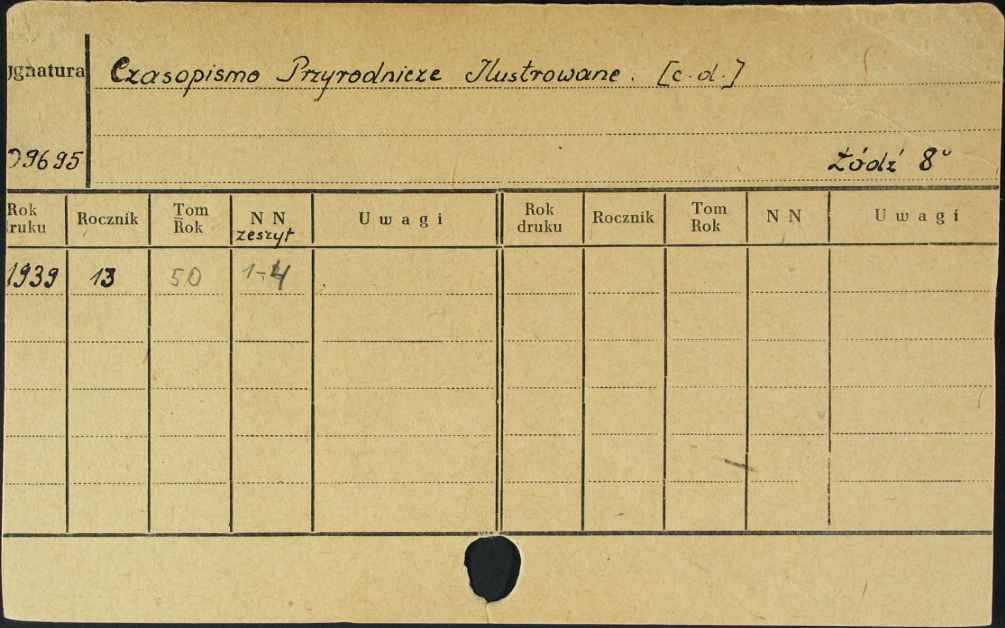 ygnatura Czasopismo Przyrodnicze Ilustrowane. [c.d.]
09695 Łódź 8°
Rok druku Rocznik Tom Rok N N zeszyt Uwagi Rok druku Rocznik Tom Rok N N Uwagi
1939 13 50 1-4